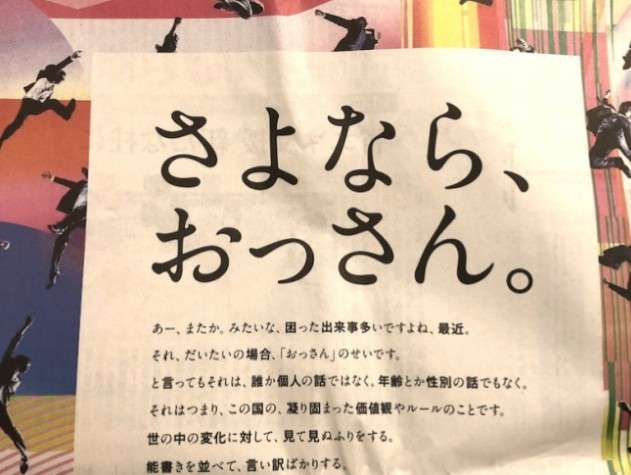 さよなら、
おっさん。
あー、またか。みたいな、困った出来事多いですよね、最近。
それ、だいたいの場合、「おっさん」のせいです。
と言ってもそれは、誰か個人の話ではなく。年齢とか性別の話でもなく。
それはつまり、この国の、凝り固まった価値観やルールのことです。
世の中の変化に対して、見て見ぬふりをする。
能書きを並べて、言い訳ばかりする。